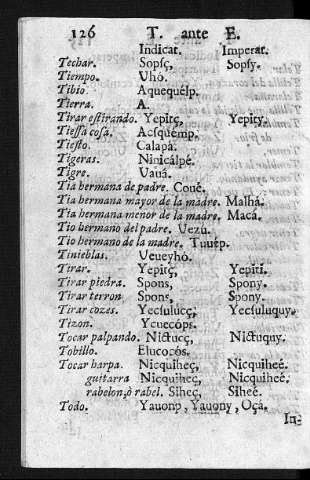 126 T. ante E.
Indicat. Imperat.
Techar. Sopsç, Sopsy.
Tiempo. Uho.
Tibio Aquequelp.
Tierra. A.
Tirar estirando. Yepirç, Yepiçy.
Tiessa cosa. Acsquemp.
Tiesto. Calapa.
Tigeras. Ninicalpé.
Tigre. Vauà.
Tia hermana de padre. Couê.
Tia hermana mayor de la madre. Malhâ.
Tia hermana menor de la madre. Macâ.
Tio hermano del padre. Uezu.
Tio hermano de la madre. Tuuep.
Tinieblas. Ueueyhó.
Tirar. Yepirç, Yepiri.
Tirar piedra. Spons, Spony.
Tirar terron Spons, Spony.
Tirar cozes. Yecsulucç, Yecsuluquy.
Tizon. Ycuecóps.
Tocar palpando. Nictucç, Nictuquy.
Tobillo. Elucocós.
Tocar harpa. Nicquiheç, Nicquiheé.
guitarra Nicquiheç, Nicquiheé.
rabelon, ò rabel. Siheç, Siheé.
Todo. Yauonp, Yauony, Oça.
In-